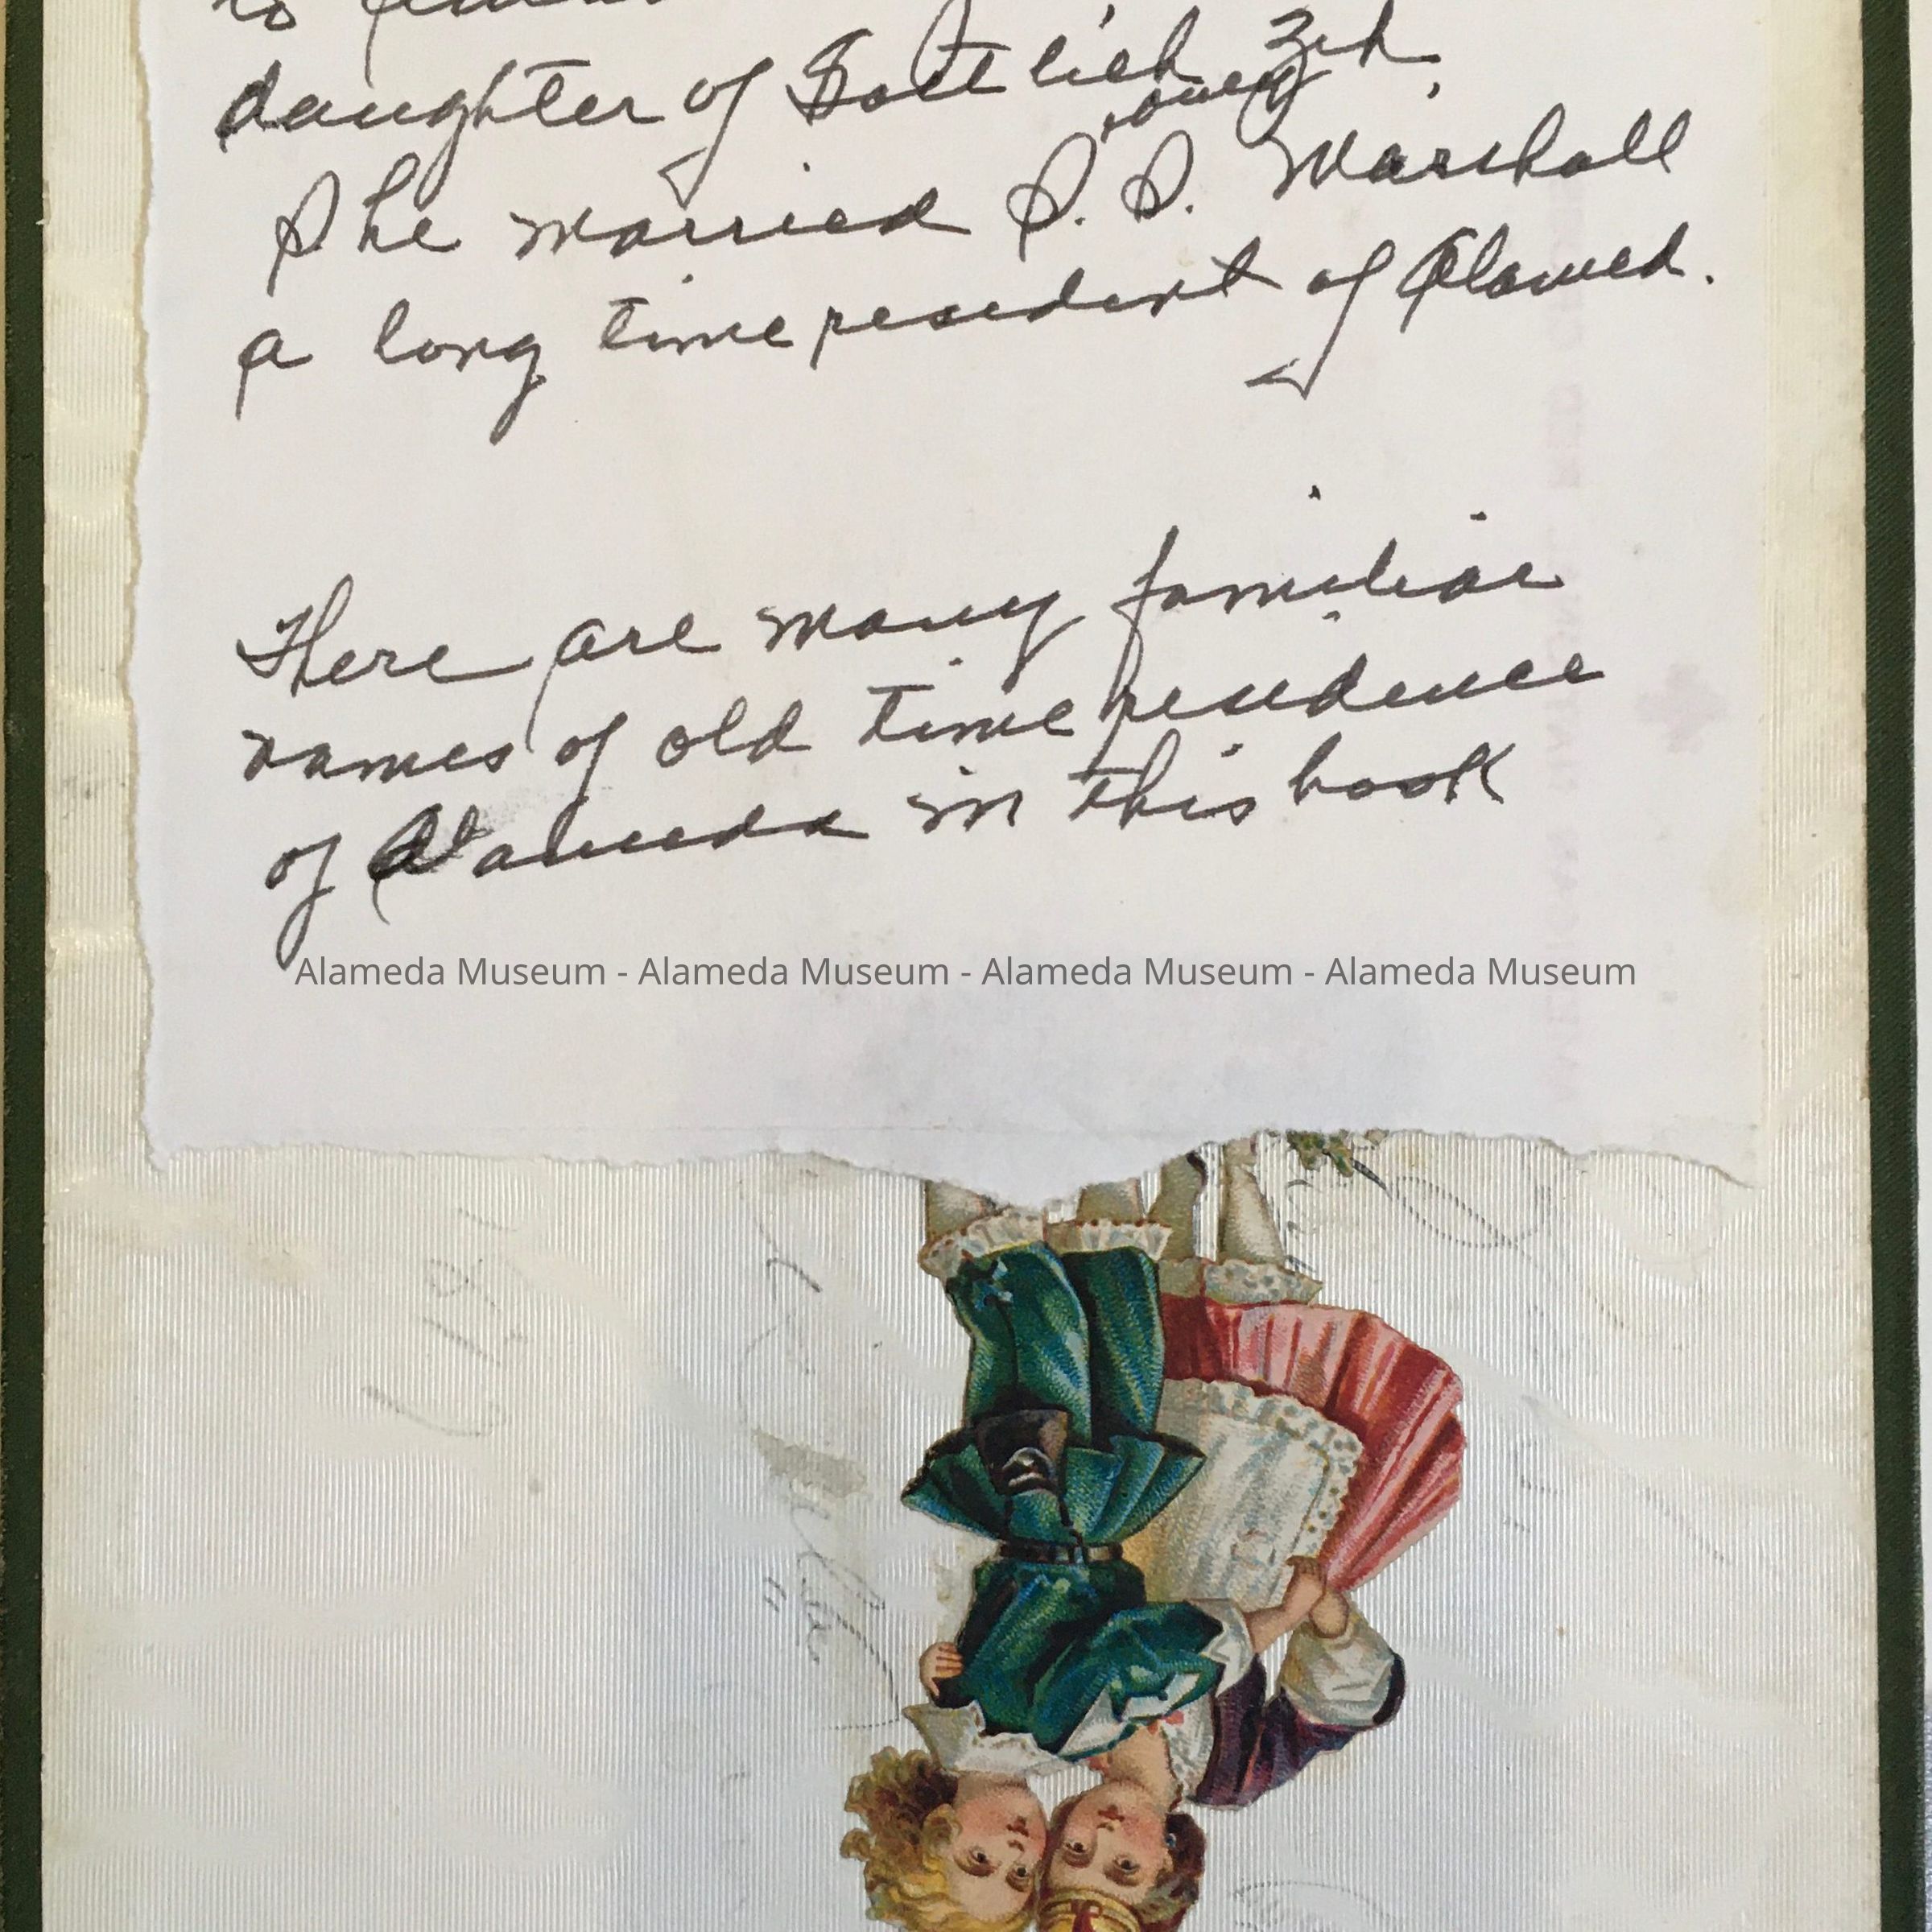 to
daughter of Gottlieb
She married S. S. Marshall
a long time resident of Alamed.
There are many familiar
names of old time residence
of Alameda in this book
Alameda Museum - Alameda Museum - Alameda Museum - Alameda Museum